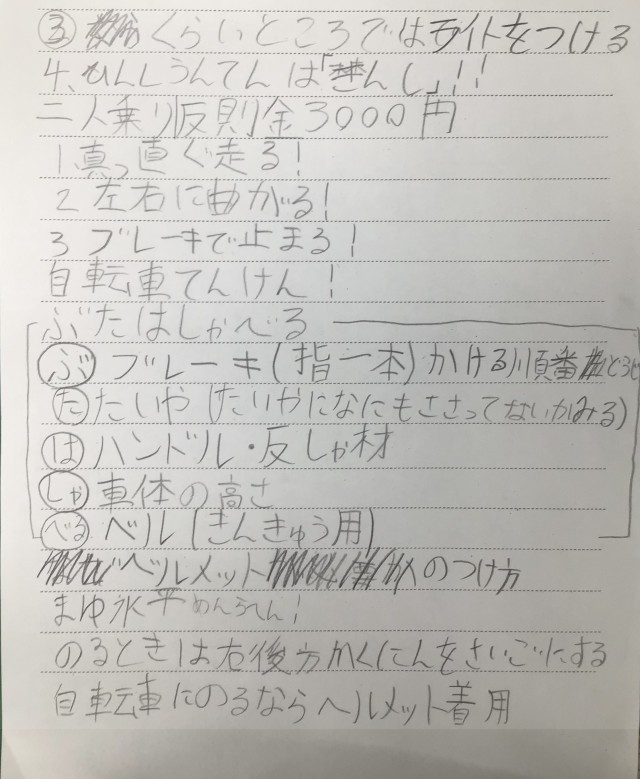 ③ くらいところではライトをつける
4、いんしうんてんは「きんし」!!
二人乗り反則金3000円
1、真っ直ぐ走る!
2 左右に曲がる!
3 ブレーキで止まる!
自転車てんけん!
ぶたはしゃべる
ぶ ブレーキ(指一本)かける順番
た たいや(たいやになにもささってないかみる)
は ハンドル・反しゃ材
しゃ 車体の高さ
べる ベル(きんきゅう用)
ヘルメットのつけ方
まゆ水平
のるときは右後方かくにんをさいごにする
自転車にのるならヘルメット着用